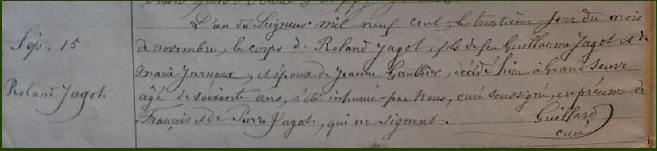 L'an du Seigneur mil neuf cent, le trentième jour du mois
Sép. 15
de novembre, le corps de Roland Jagot, fils de feu Guillaume Jagot et de
Marie et époux de Jeanne Gautier, décédé hier à
Roland Jagot
âgé de soixante ans, a été inhumé par Nous, curé soussigné, en présence de
François & de Pierre Jagot, qui ne signent.
Guillard
curé